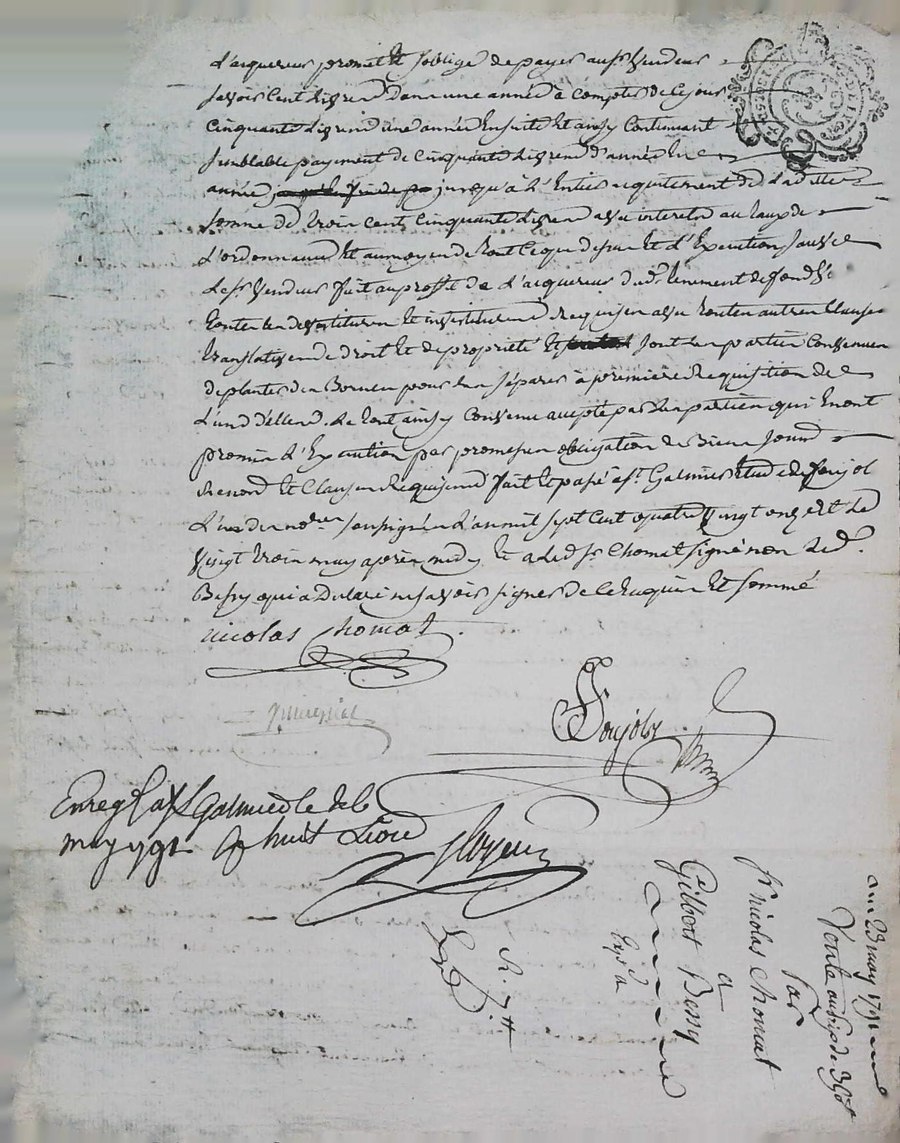 L'acquereur promet et s'oblige de payer aud. Sr. Vendeur
savoir Cent livres dans une année à compter de ce jour
Cinquante livres une année Ensuite Et ainsy Continuant
semblable payement de Cinquante livres d'année En
année jusqu'à l'Entier acquitement de Ladite
somme de trois Cent Cinquante livres avec interets au taux de
L'ordonnance Et au moyen de tout Ce que dessus Et d'Execution
Le Sr. Vendeur fait au proffit de L'acquereur dud. tenement de fonds
toutes les devestitures Et investitures Requises avec toutes autres Clauses
translatives de droit Et de proprieté Et sont Les parties Convenues
de planter des Bornes pour Les séparer à premiere Requisition de
L'une d'Elles. Le tout ainsy Convenu accepté par Les parties qui Ent ont
promis L'Execution par promesses obligation de Biens
Renond. Et Clauses Requises. fait Et passé à St. Galmier Etude de Soujol
L'un des nores. soussignés L'an mil sept Cent quatre Vingt onze Et Le
Vingt trois may après midy Et a Led. Sr. Chomat signé non Led.
Bessy qui a Declaré ne savoir signer de Ce Enquis Et sommé
nicolas Chomat
Soujol
Enreg. a St Galmier le
may 1791 huit Livres
R. 7.tt
du 23 may 1791
Vente au prix de 350tt
Par
Sr nicolas Chomat
a
Gilbert Bessy
Exp.é